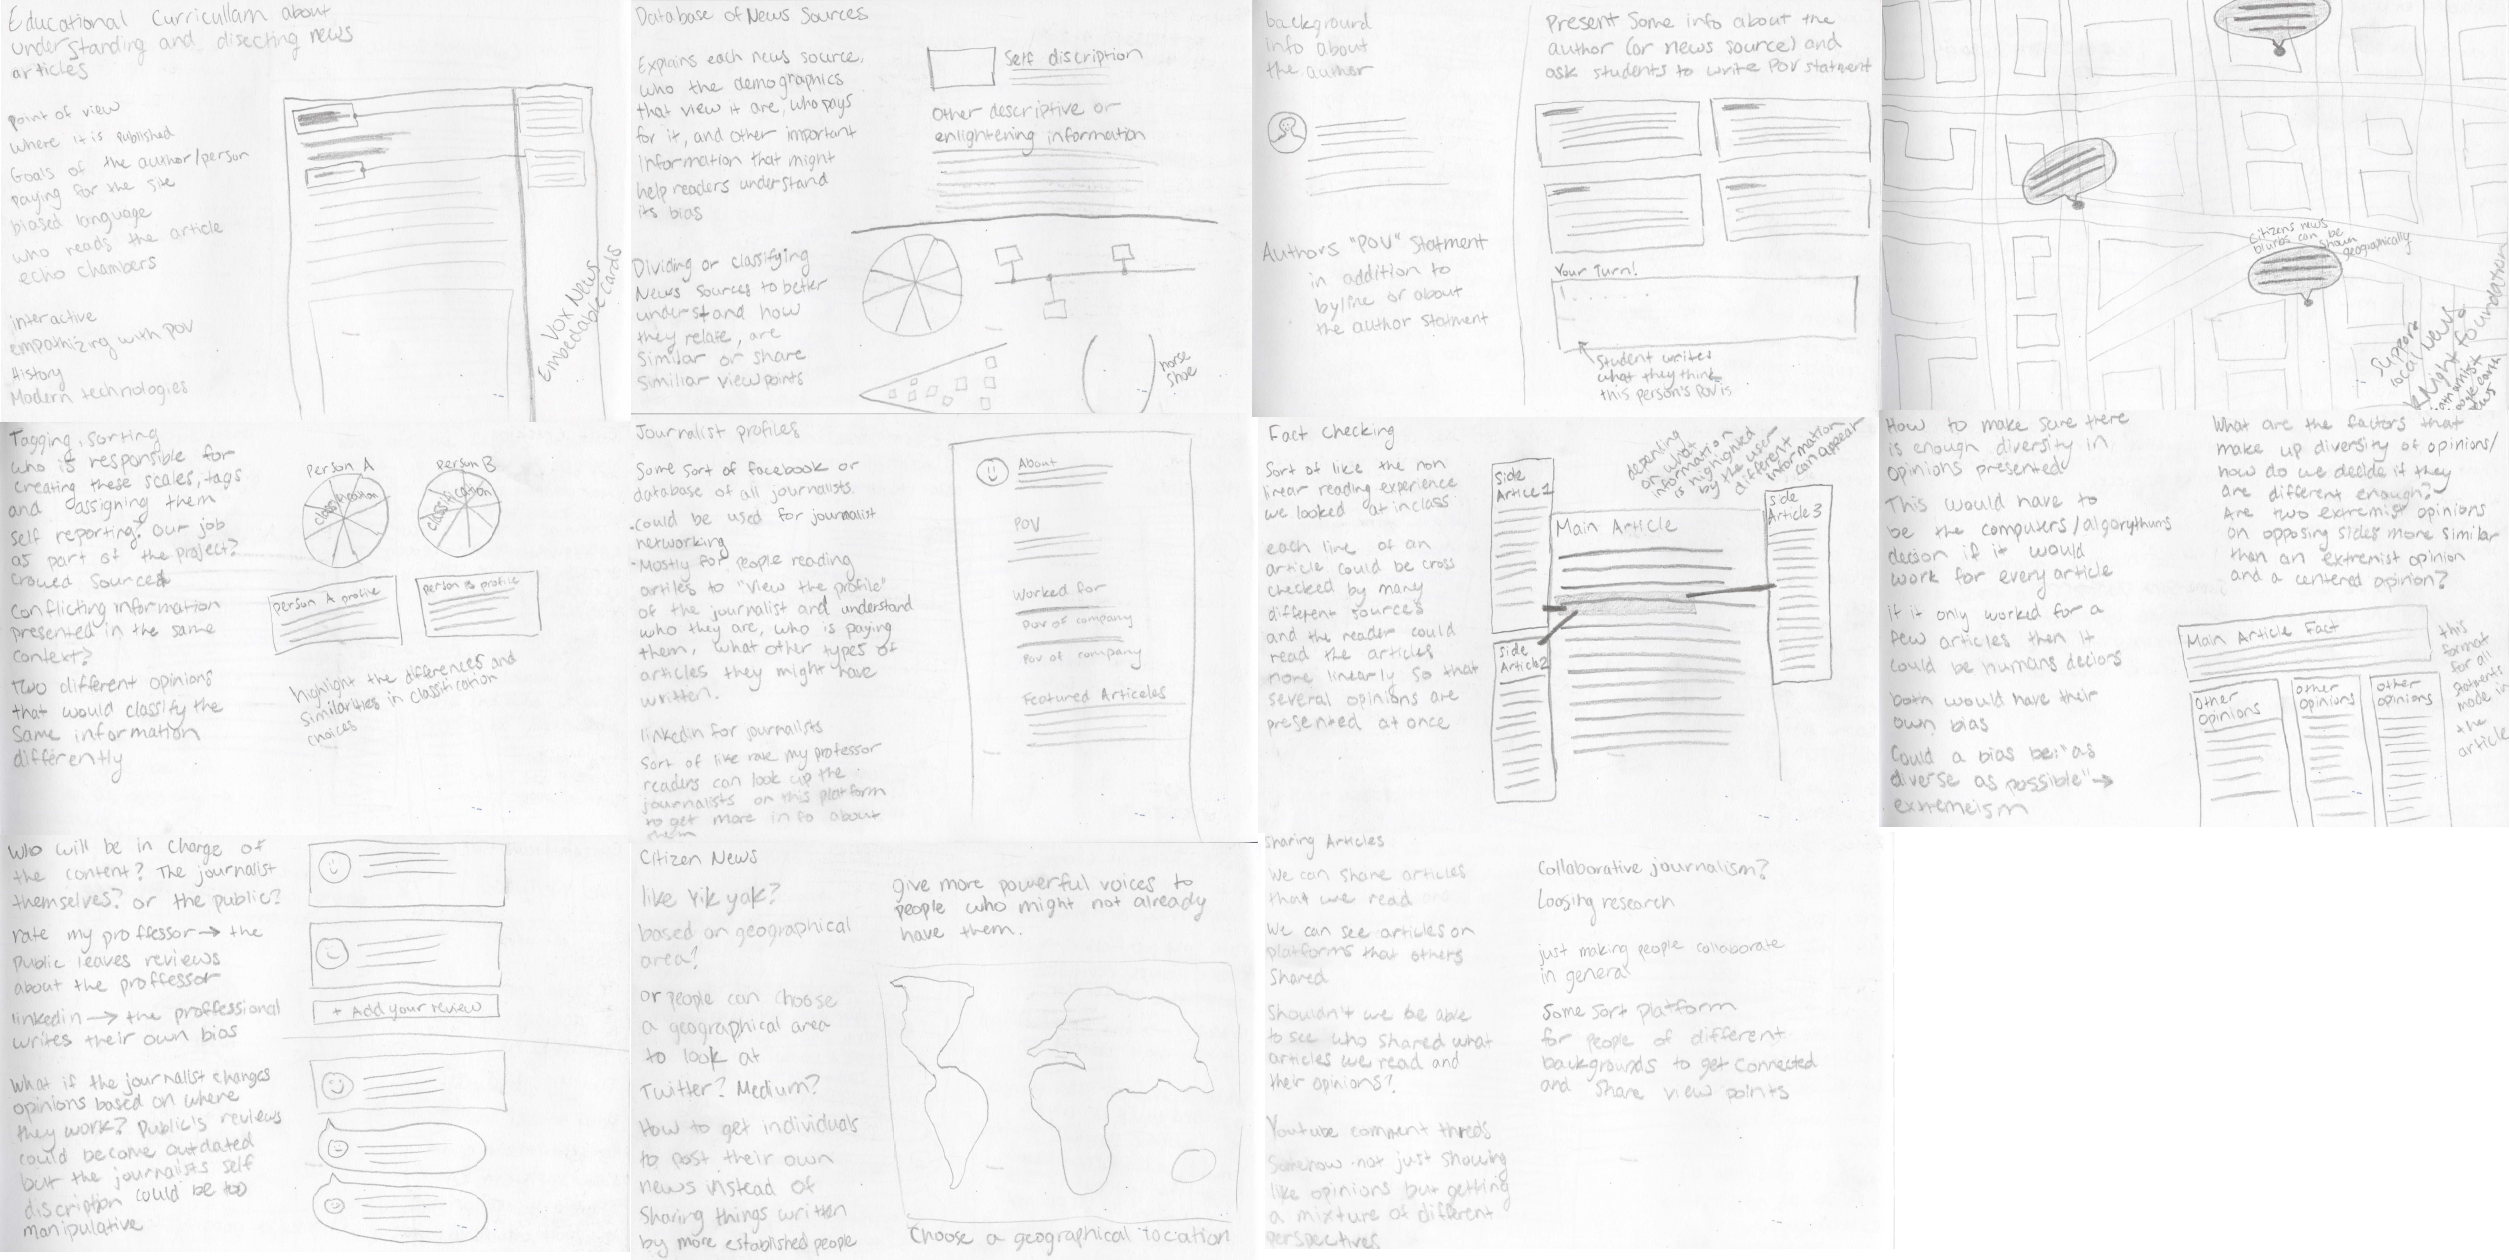 Educational Curricullam about
understanding and disecting news
articles
point of view
where it is published
Goals of the author/person
paying for the site
biased language
who reads the article
echo chambers
interactive
empathizing with POV
History
Modern technologies
Vox News
Embedable cards
Database of News Sources
Explains each news source,
who the demographics
that view it are, who pays
for it, and other important
Information that might
help readers understand
its bias
Dividing or classifying
News sources to better
understand how
they relate, are
Similar or share
similiar viewpoints
Self discription
Other descriptive or
enlightening information
horse
shoe
background
info about
the author
Authors "POV" Statment
in addition to
byline or about
the author statment
Present some info about the
author (or news source) and
ask students to write POV statment
Your Turn!
Student writes
what they think
this person's POV is
citizens news
blurbs can be
shown
geographically
Support
local News
Knight foundation
Tagging, Sorting
who is responsible for
creating these scales, tags
and assigning them
self reporting? Our job
as part of the project?
Crowed sourced
Conflicting information
presented in the same
context?
Two different opinions
that would classify the
Same information
differently
person A
person B
classification
classification
person A profile
person B profile
highlight the differences and
similarities in classification
choices
Journalist profiles
Some sort of facebook or
database of all journalists.
could be used for journalist
networking
Mostly for people reading
articles to "view the profile"
of the journalist and understand
who they are, who is paying
them, what other types of
articles they might have
written.
linkedin for journalists
Sort of like rate my professor
readers can look up the
journalists on this platform
to get more info about
them
About
POV
Worked for
POV of company
Pov of company
Featured Articeles
Fact Checking
Sort of like the non
linear reading experience
we looked at in class
each line of an
article could be cross
checked by many
different sources
and the reader could
read the articles
none linearly so that
several opinions are
presented at once
depending
on what
information
is highlighted
by the user
different
information
can appear
Side
Article 1
Main Article
Side
Article 3
Side
Article 2
How to make sure there
is enough diversity in
opinions presented
This would have to
be the computers/algorythums
decison if it would
work for every article
if it only worked for a
few articles then it
could be humans decions
both would have their
own bias
Could a bias be: "as
diverse as possible" →
extremeism
What are the factors that
make up diversity of opinions/
how do we decide if they
are different enough?
Are two extremist opinions
on opposing sides more similar
than an extremist opinion
and a centered opinion?
Main Article Fact
Other
Opinions
Other
opinions
other
opinions
this
format
for all
statments
made in
the
article
Who will be in charge of
the content? The journalist
themselves? or the public?
rate my proffessor → the
Public leaves reviews
about the proffessor
linkedin → the proffessional
writes their own bios
What if the journalist changes
opinions based on where
they work? Public's reviews
could become outdated
but the journalists self
discription could be too
manipulative
+ Add your review
Citizen News
like Yik yak?
based on geographical
area?
or people can choose
a geographical area
to look at
Twitter? Medium?
How to get individuals
to post their own
news instead of
Sharing things written
by more established people
give more powerful voices to
people who might not already
have them.
Choose a geographical location
Sharing Articles
We can share articles
that we read
We can see articles on
platforms that others
Shared
Shouldn't we be able
to see who shared what
articles we read and
their opinions?
Youtube comment threds
Somehow not just showing
like opinions but getting
a mixture of different
perspectives
Collaborative journalism?
Loosing research
just making people collaborate
in general
Some sort platform
for people of different
backgrounds to get connected
and share view points